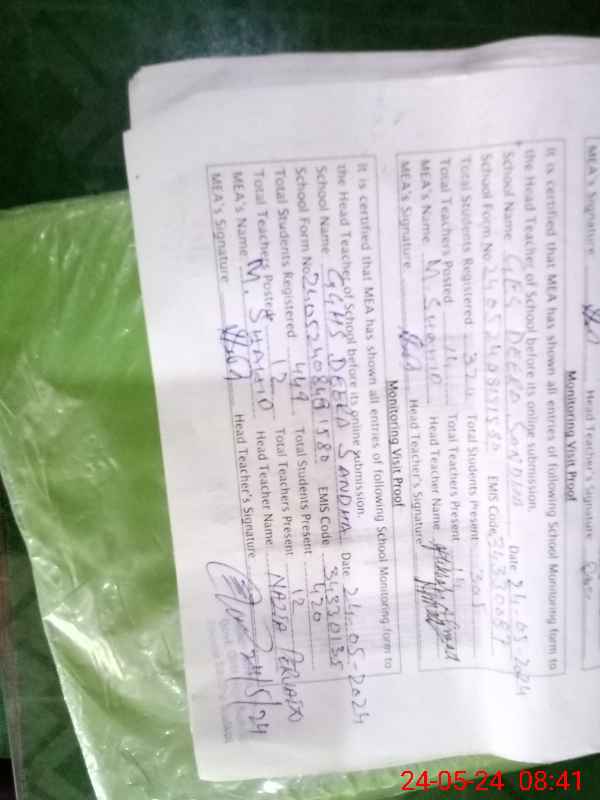 MEA's Signature Head Teacher's Signature
Monitoring Visit Proof
It is certified that MEA has shown all entries of following School Monitoring form to
the Head Teacher of School before its online submission.
School Name GES DEERA SANDHA Date 24-05-2024
School Form No EMIS Code
Total Students Registered Total Students Present 305
Total Teachers Posted 14 Total Teachers Present
MEA's Name M. SHAHID Head Teacher Name
MEA's Signature Head Teacher's Signature
Monitoring Visit Proof
It is certified that MEA has shown all entries of following School Monitoring form to
the Head Teacher of School before its online submission.
School Name GGHS DEERA SANDHA Date 24-05-2024
School Form No EMIS Code 34320135
Total Students Registered 449 Total Students Present 420
Total Teachers Posted 12 Total Teachers Present 12
MEA's Name M. SHAHID Head Teacher Name NAZIA PERVAIZ
MEA's Signature Head Teacher's Signature 24/5/24
24-05-24 08:41